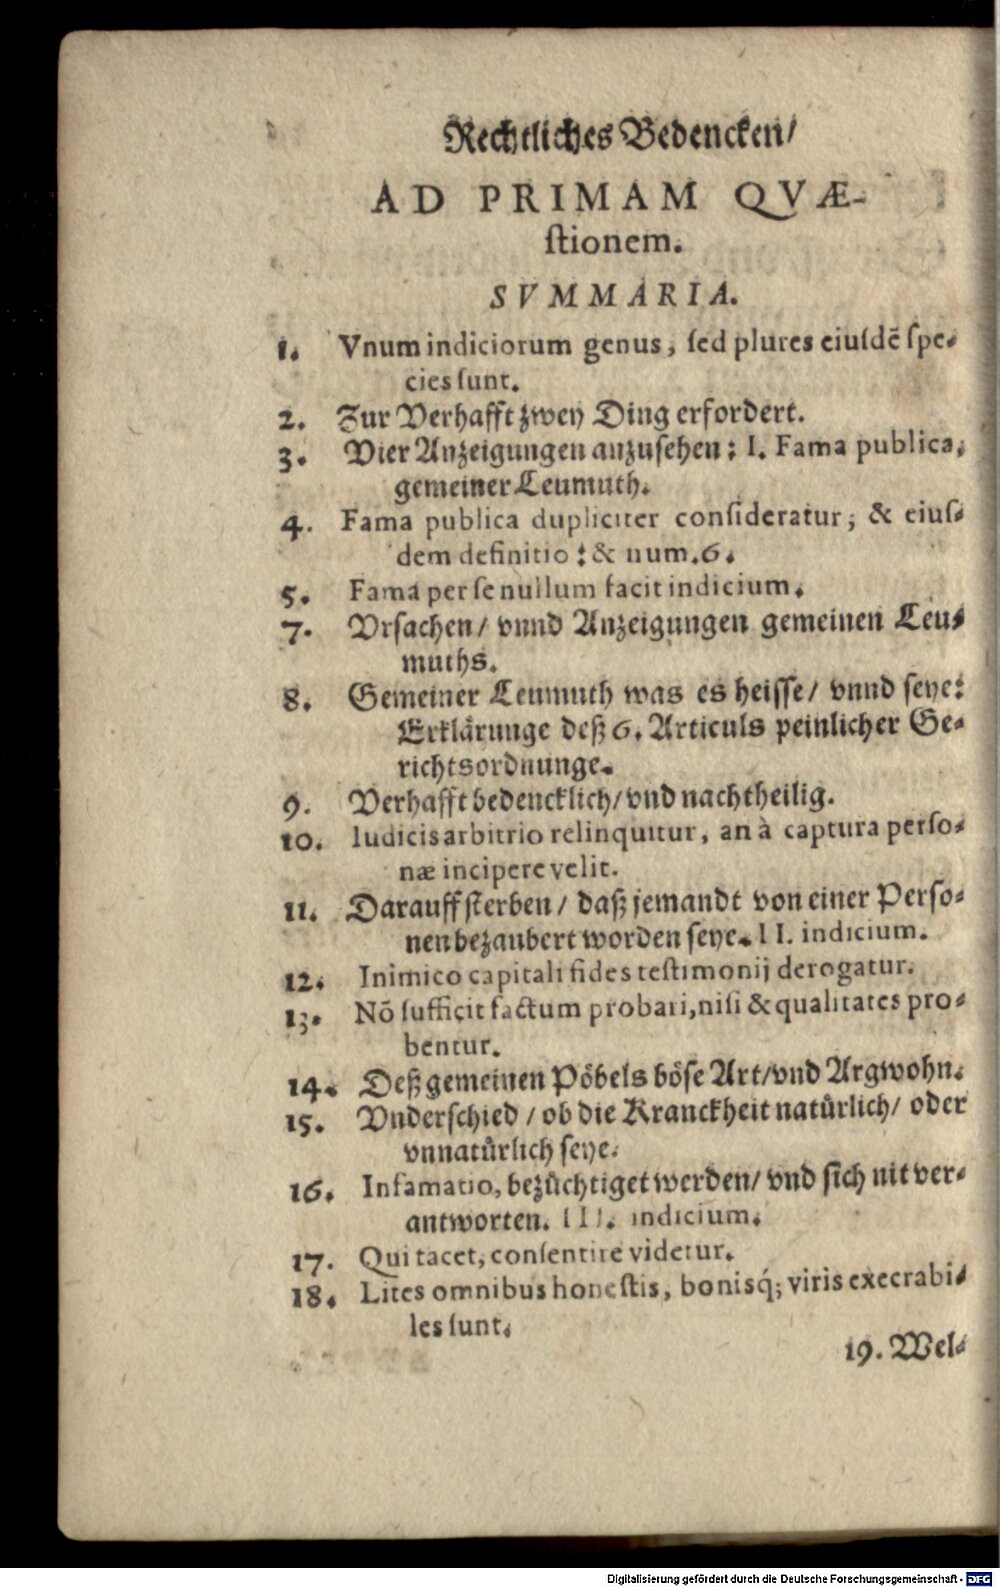 Rechtliches Bedencken/
AD PRIMAM QVÆ-
ſtionem.
SVMMARIA.
1. Vnum indiciorum genus, ſed plures eiuſdē ſpe-
cies ſunt.
2. Zur Verhafft zwey Ding erfordert.
3. Vier Anzeigungen anzuſehen: I. Fama publica,
gemeiner Leumuth.
4. Fama publica dupliciter conſideratur, & eiuſ-
dem definitio: & num. 6.
5. Fama per ſe nullum facit indicium.
7. Vrſachen/ vnnd Anzeigungen gemeinen Leu-
muths.
8. Gemeiner Leumuth was es heiſſe/ vnnd ſeye:
Erklärunge deß 6. Articuls peinlicher Ge-
richtsordnunge.
9. Verhafft bedencklich/ vnd nachtheilig.
10. Iudicis arbitrio relinquitur, an à captura perſo-
næ incipere velit.
11. Darauff ſterben/ daß jemandt von einer Perſo-
nen bezaubert worden ſeye. II. indicium.
12. Inimico capitali fides teſtimonij derogatur.
13. Nō ſufficit factum probari, niſi & qualitates pro-
bentur.
14. Deß gemeinen Pöbels böſe Art/ vnd Argwohn.
15. Vnderſchied/ ob die Kranckheit natürlich/ oder
vnnatürlich ſeye.
16. Infamatio, bezüchtiget werden/ vnd ſich nit ver-
antworten. III. indicium.
17. Qui tacet, conſentire videtur.
18. Lites omnibus honeſtis, bonisq́; viris execrabi-
les ſunt.
19. Wel-
Digitalisierung gefördert durch die Deutsche Forschungsgemeinschaft - DFG